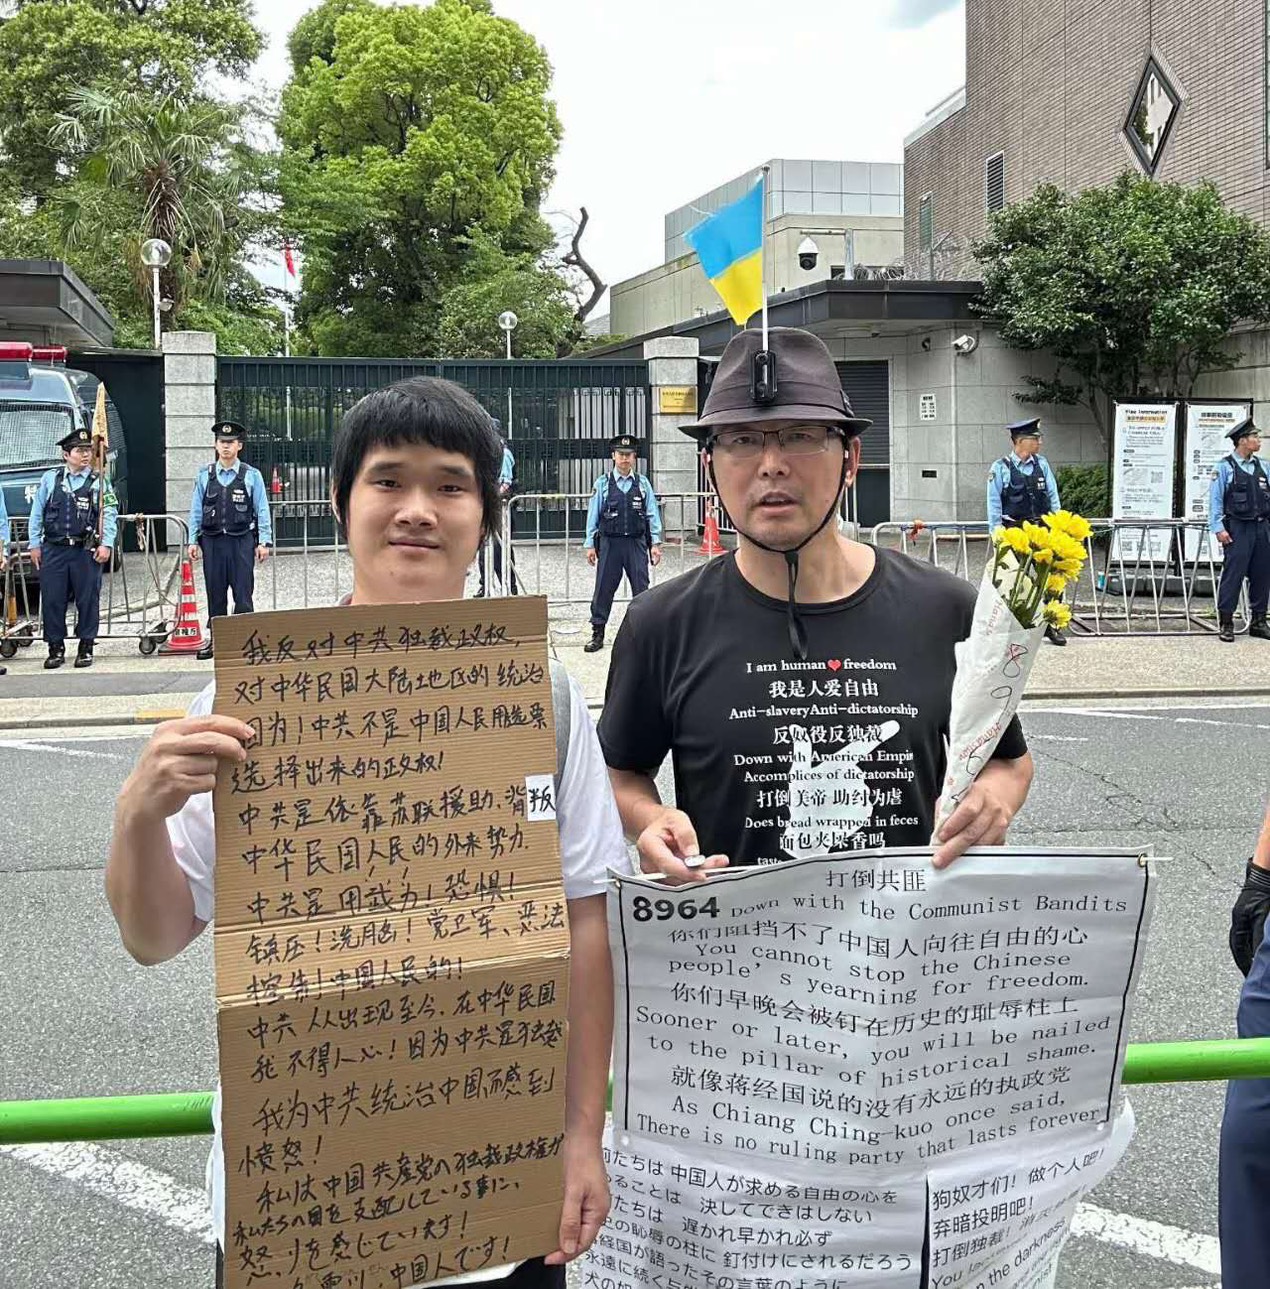 我反对中共独裁政权,
对中华民国大陆地区的统治
因为!中共不是中国人民用选票
选择出来的政权!
中共是依靠苏联援助、背叛
中华民国人民的外来势力
中共是用武力!恐惧!
镇压!洗脑!党卫军、恶法
控制中国人民的!
中共从出现至今,在中华民国
就不得人心!因为中共是独裁
我为中共统治中国而感到
愤怒!
私は中国共産党の独裁政権が
私たちの国を支配している事に、
怒りを感じています!
中国人です!
I am human freedom
我是人爱自由
Anti-slavery Anti-dictatorship
反奴役反独裁
Down with American Empir
Accomplices of dictatorship
打倒美帝 助纣为虐
Does bread wrapped in feces
面包夹屎香吗
打倒共匪
8964 Down with the Communist Bandits
你们阻挡不了中国人向往自由的心
You cannot stop the Chinese
people's yearning for freedom.
你们早晚会被钉在历史的耻辱柱上
Sooner or later, you will be nailed
to the pillar of historical shame.
就像蒋经国说的没有永远的执政党
As Chiang Ching-kuo once said,
There is no ruling party that lasts forever
たちは 中国人が求める自由の心を
ることは 決してできはしない
たちは 遅かれ早かれ必ず
の恥辱の柱に 釘付けにされるだろう
経国が語ったその言葉のように
永遠に続く
犬の
狗奴才们!做个人吧!
弃暗投明吧!
打倒独裁!
You
n the darkness